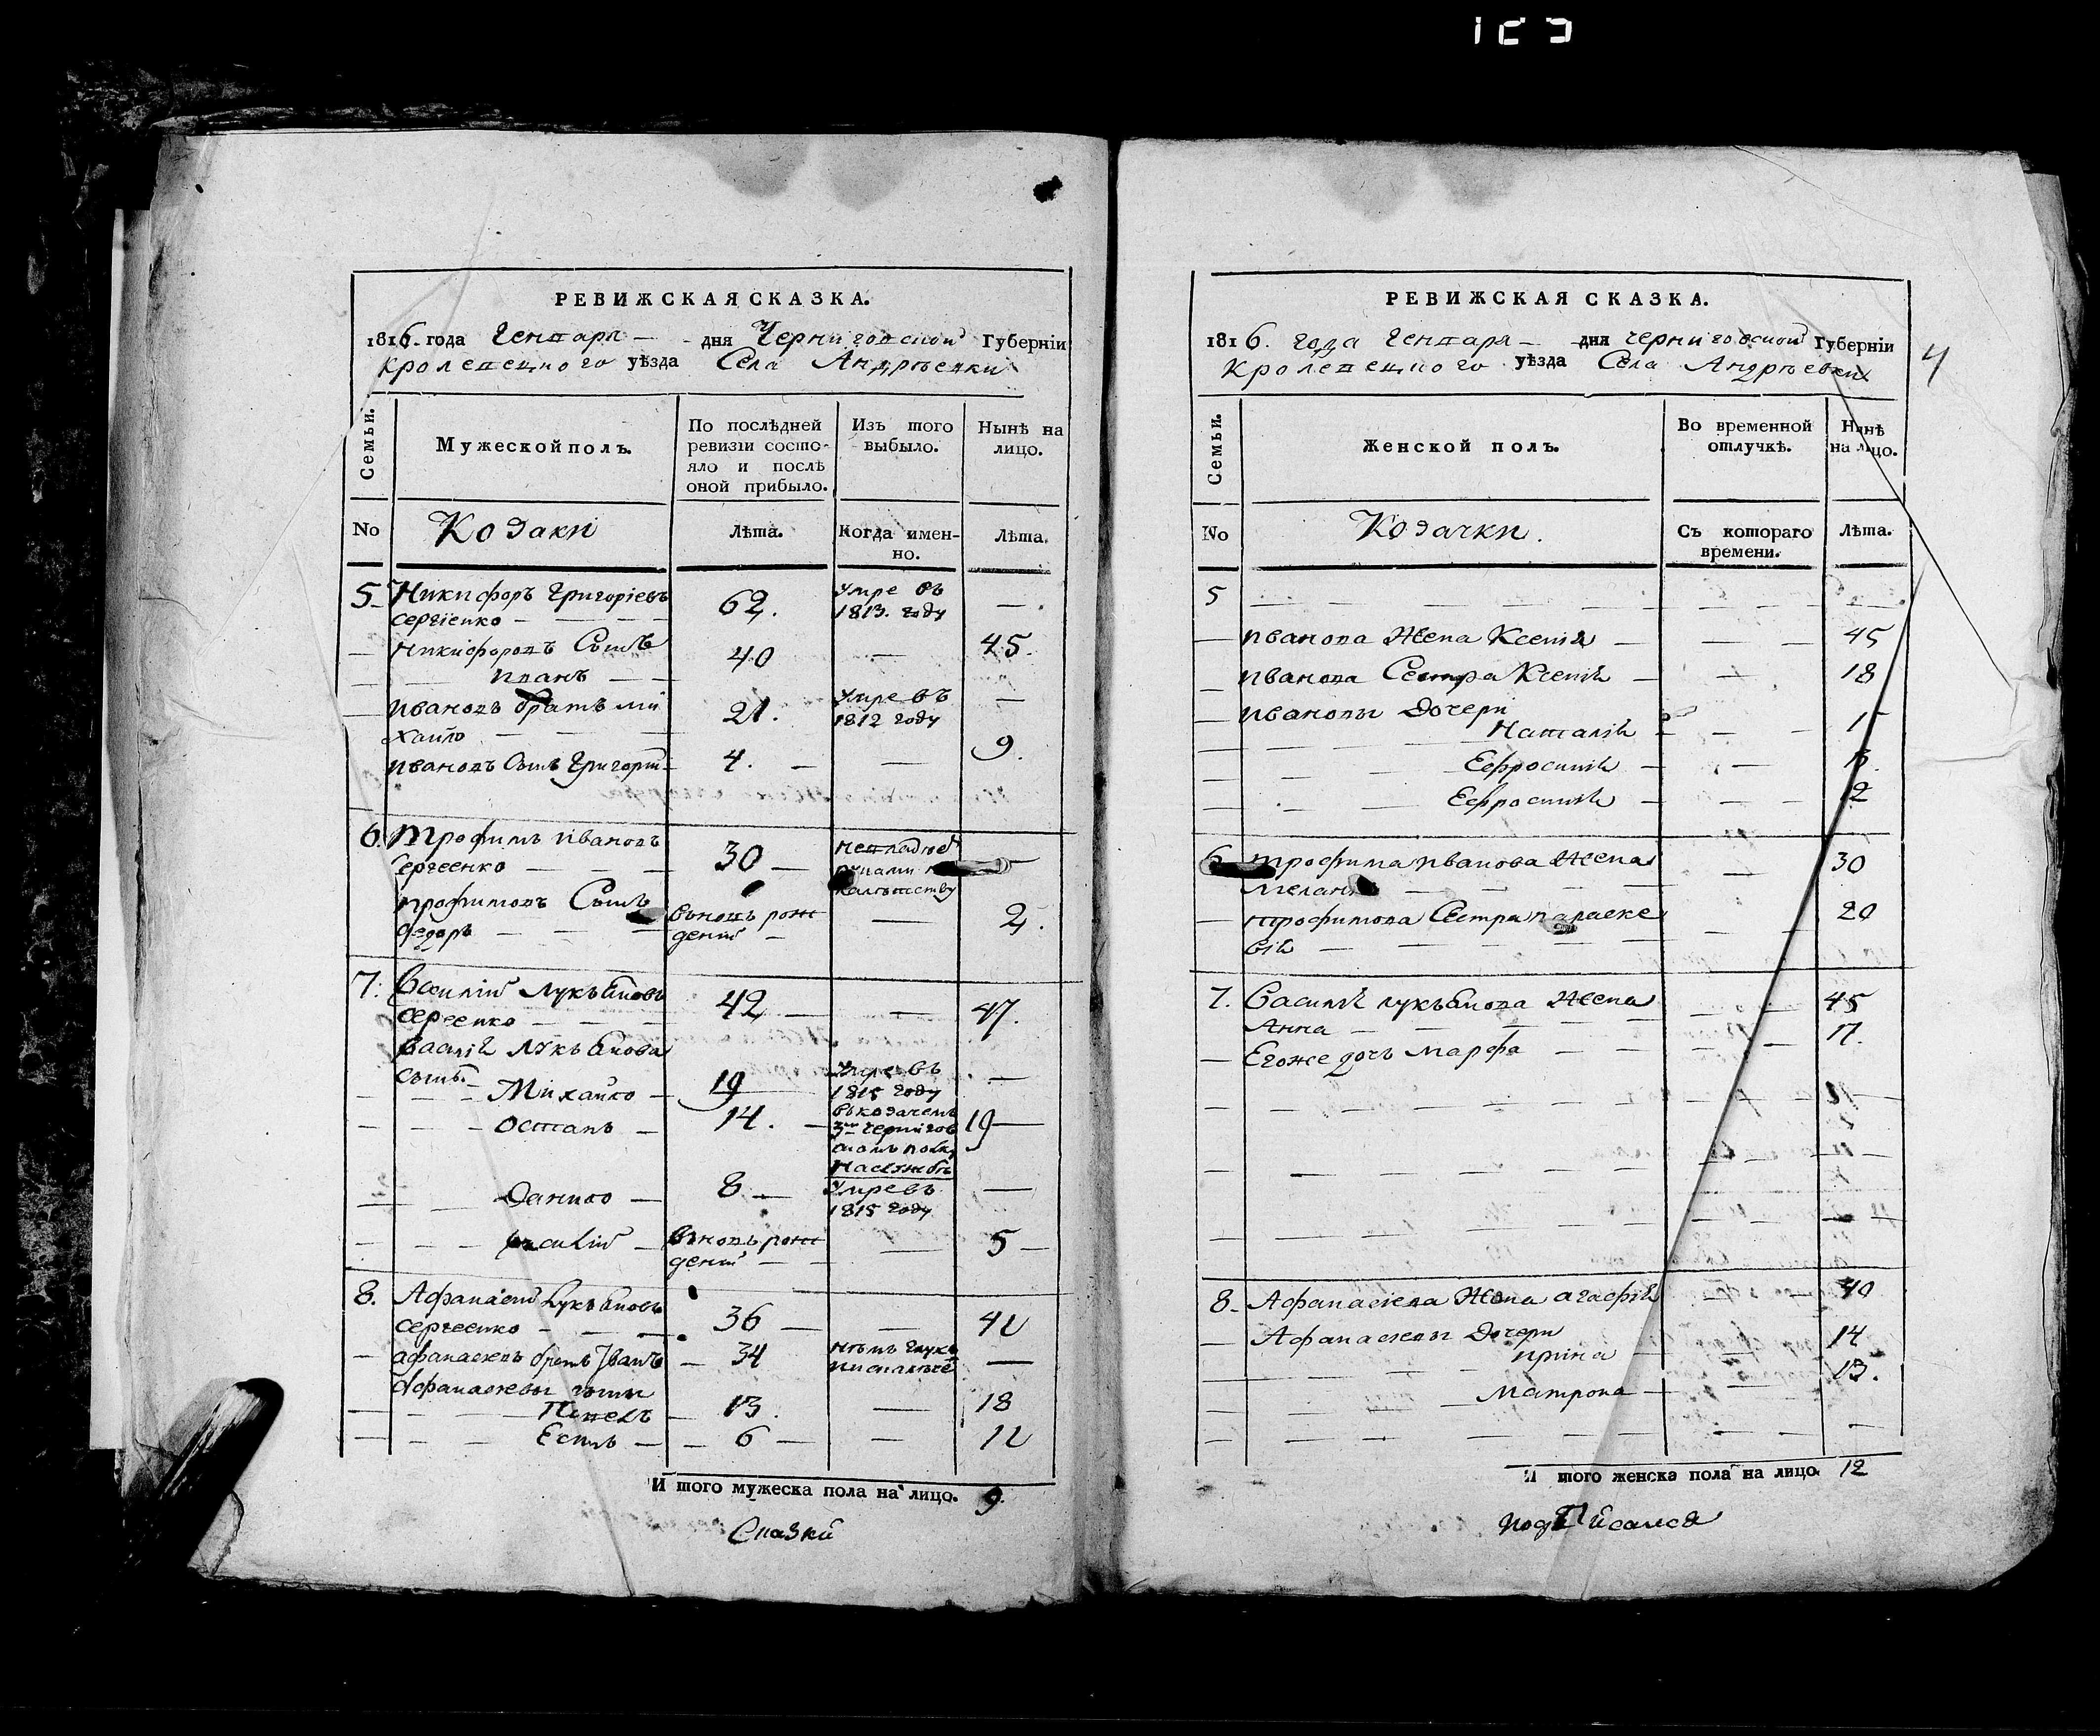 РЕВИЖСКАЯ СКАЗКА.
1816. года Генваря — дня Черниговской Губернїи
Кролевецкого уѣзда Села Андрѣевки
Семьи.
Мужеской полъ.
По послѣдней ревизїи состояло и послѣ оной прибыло.
Изъ того выбыло.
Нынѣ на лицо.
No
Козаки
Лѣта.
Когда именно.
Лѣта.
5. Никифоръ Григоріевъ 62. Умре въ
Сергіенко — 1813. году —
Никифоровъ Сынъ 40 — 45.
Иванъ
Ивановъ братъ Ми 21. Умре въ —
хайло 1812 году
Ивановъ Сынъ Григорій 4. — 9.
6. Трофимъ Ивановъ 30 —
Сергеенко
Трофимовъ Сынъ вновь рож — 2.
Федоръ деній
7. Василій Лукъяновъ 42 — 47.
Сергеенко
Василія Лукъянова
Сынъ. Умре въ
Михайло 19 1815 году —
Остапъ 14. въ козачемъ 19
3м Чернігов
скомъ полку
На службе
Данило 8 Умре въ —
1815 году
Василій вновь рож — 5
деній
8. Афанасій Лукъяновъ 36 — 41
Сергеенко
Афанасіевъ братъ Іванъ 34 —
Афанасіевы сыны
Павелъ 13. — 18
6 — 11
И того мужеска пола на лицо. 9.
Сказки
РЕВИЖСКАЯ СКАЗКА.
1816. года Генваря — дня Черниговской Губернїи
Кролевецкого уѣзда Села Андрѣевки
4
Семьи.
Женской полъ.
Во временной отлучкѣ.
Нынѣ на лицо.
No
Козачки.
Съ котораго времени.
Лѣта.
5
Иванова Жена Ксенія — 45
Иванова Сестра Ксенія — 18
Ивановы Дочери
Наталія
Ефросинія
Ефросинія 2
6 Трофима Иванова Жена 30
Меланія
Трофимова Сестра Параске 20
вія
7. Василія Лукъянова Жена 45
Анна 17.
Егоже дочь Марфа
8. Афанасіева Жена Агафія 40
Афанасіевы Дочери 14
Ирина
Матрона 13.
И того женска пола на лицо. 12
подПисался